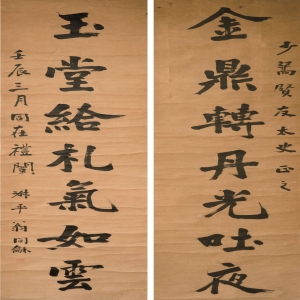 少賢友太史正之
金鼎轉丹光吐夜
玉堂給札氣如雲
壬辰三月同在禮闈 叔平翁同龢